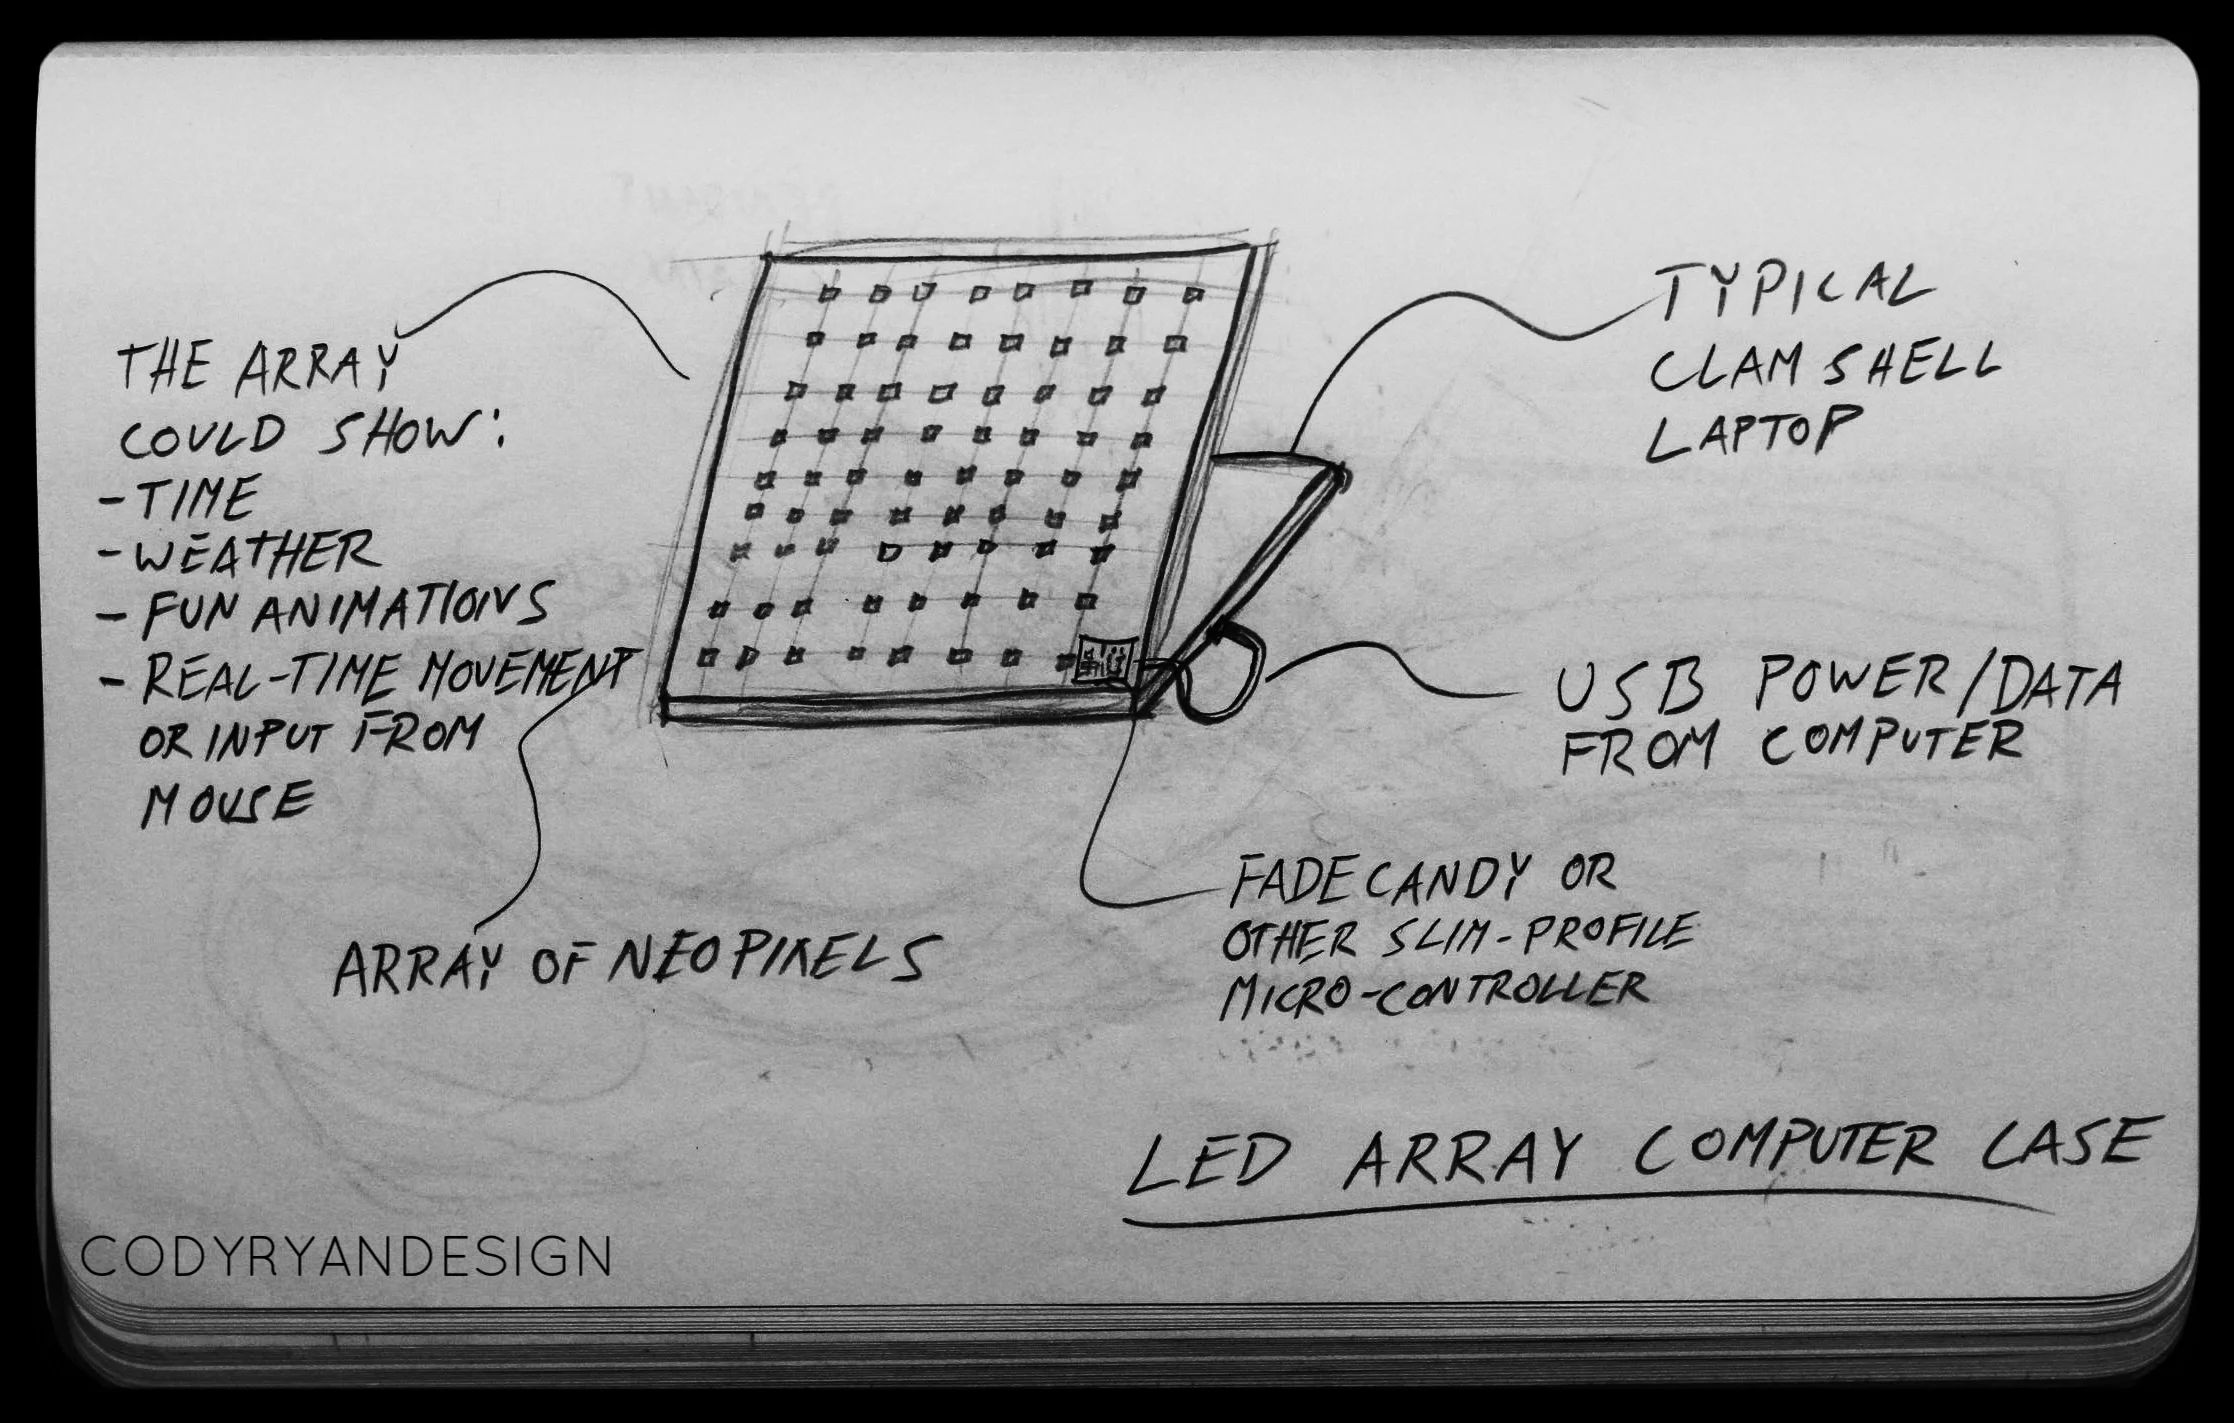 THE ARRAY
COULD SHOW:
- TIME
- WEATHER
- FUN ANIMATIONS
- REAL-TIME MOVEMENT
OR INPUT FROM
MOUSE
ARRAY OF NEOPIXELS
TYPICAL
CLAM SHELL
LAPTOP
USB POWER/DATA
FROM COMPUTER
FADECANDY OR
OTHER SLIM-PROFILE
MICRO-CONTROLLER
LED ARRAY COMPUTER CASE
CODYRYANDESIGN